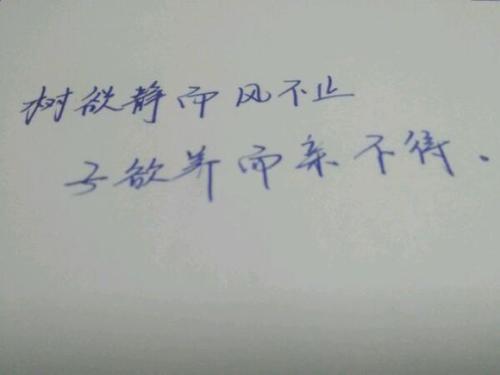 树欲静而风不止
子欲养而亲不待.